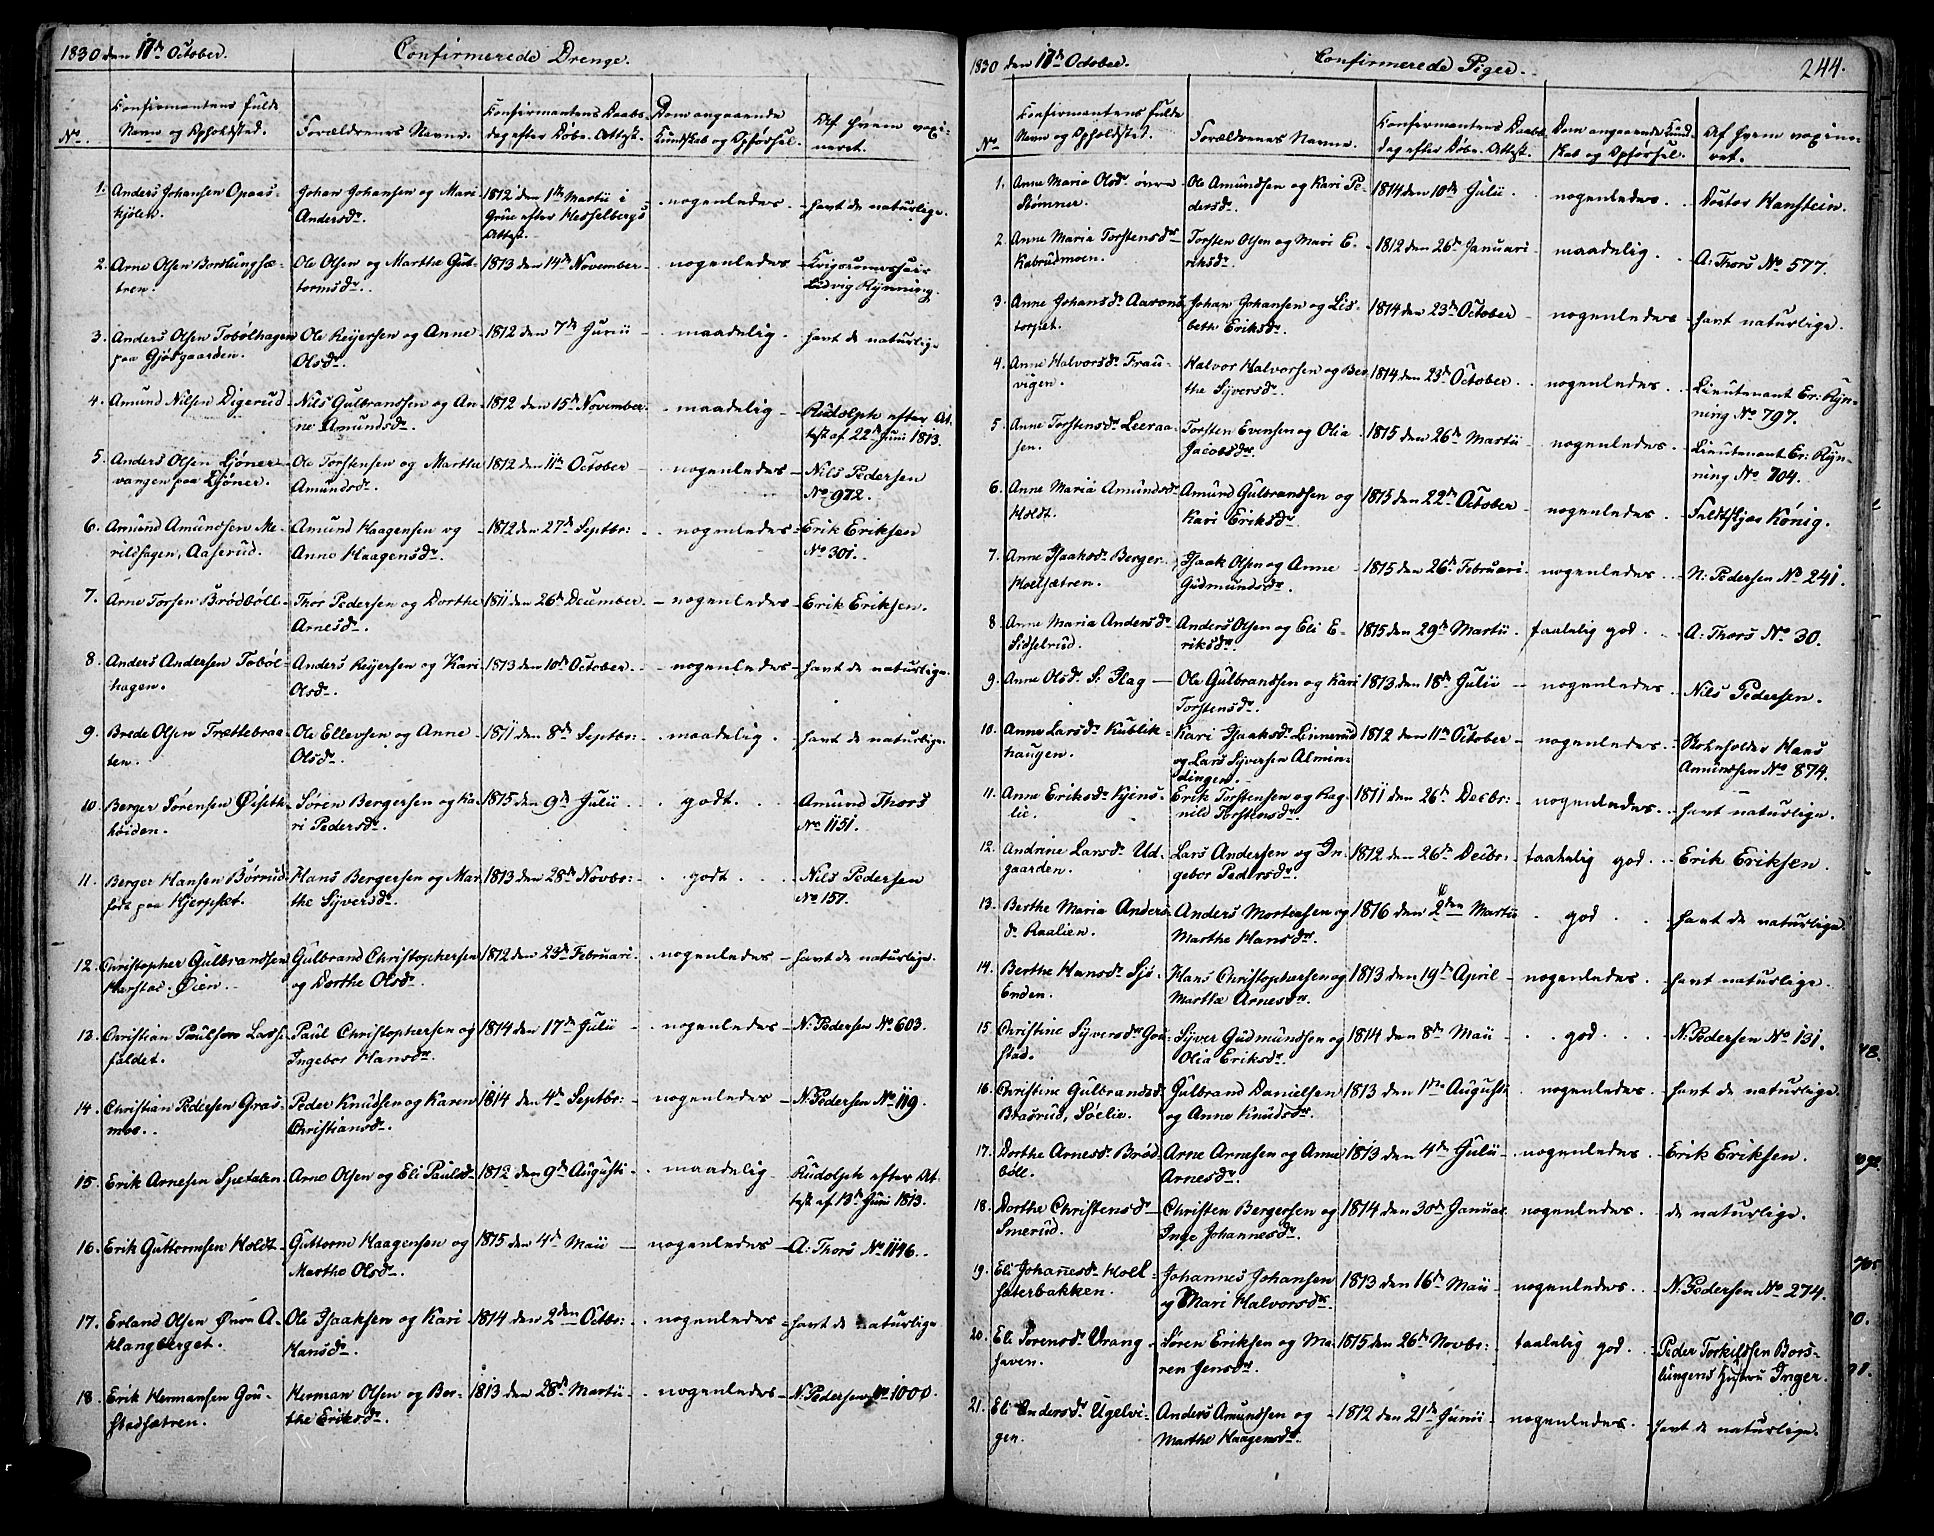 1830 den 17de October. Confirmerede Drenge.
No. Confirmantens fulde Navn og Opholdsted. Forældrenes Navne. Confirmantens Daabsdag efter Døbe-Attest. Dom angaaende Kundskab og Opførsel. Af hvem vaxineret.
1. Anders Johansen Opaas- Johan Johansen og Mari 1812 den 1ste Martii i nogenledes havt de naturlige.
kjølen. Andersdr. Grue efter Hesselbergs
Attest.
2. Arne Olsen Borslungsæ- Ole Olsen og Marthe Gut- 1813 den 14de November nogenledes
tren. tormsdr. Ludvig Rynning.
3. Anders Olsen Tobølhagen Ole Reijersen og Anne 1812 den 7de Junii maadelig. havt de naturlige
paa Gjøsgaarden. Olsdr.
4. Amund Nilsen Digerud Nils Gulbrandsen og An- 1812 den 15de November. maadelig Rudolph efter At-
ne Amundsdr. test af 22de Juni 1813.
5. Anders Olsen Ljøner- Ole Torstensen og Marthe 1812 den 11te October nogenledes Nils Pedersen
vangen paa Ljøner. Amundsdr. No 972.
6. Amund Amundsen Me- Amund Haagensen og 1812 den 27de Septbr: nogenledes Erik Eriksen
rildhagen, Aaserud. Anne Haagensdr. No 301.
7. Arne Torsen Brødbøll Thor Pedersen og Dorthe 1811 den 26de December nogenledes Erik Eriksen.
Arnesdr.
8. Anders Andersen Tobøl- Anders Reijersen og Kari 1813 den 10de October. nogenledes havt de naturlige.
hagen. Olsdr.
9. Brede Olsen Trættebraa- Ole Ellevsen og Anne 1811 den 8de Septbr: maadelig. havt de naturlige.
ten. Olsdr.
10. Berger Sørensen Øiseth- Søren Bergersen og Ka- 1815 den 9de Julii godt. Amund Thors
høiden. ri Pedersdr. No 1151.
11. Berger Hansen Børrud Hans Bergersen og Mar- 1813 den 28de Novbr: godt Nils Pedersen
født paa Hjerpset. the Sjversdr. No 157.
12. Christopher Gulbrandsen Gulbrand Christophersen 1812 den 23de Februari. nogenledes havt de naturlige.
Harstad. Øien. og Dorthe Olsdr.
13. Christian Paulsen Lasse- Paul Christophersen og 1814 den 17de Julii nogenledes N: Pedersen No 603.
faldet. Ingebor Hansdr.
14. Christian Pedersen Gras- Peder Knudsen og Karen 1814 den 4de Septbr: nogenledes N. Pedersen No 119.
moe. Christiansdr.
15. Erik Arnesen Spetalen. Arne Olsen og Eli Paulsdr. 1812 den 9de Augusti maadelig Rudolph efter At-
test af 13de Juni 1813.
16. Erik Guttormsen Holdt. Guttorm Haagensen og 1815 den 4de Maii nogenledes A: Thors No 1146.
Marthe Olsdr.
17. Erland Olsen Øvre A- Ole Isaaksen og Kari 1814 den 2den Octbr: nogenledes havt de naturlige
klangberget. Hansdr.
18. Erik Hermansen Gou- Herman Olsen og Ber- 1813 den 28de Martii nogenledes N: Pedersen No 1000.
stadsætren. the Eriksdr.
1830 den 17de October. Confirmerede Piger. 244.
No Confirmantens fulde Navn og Opholdsted. Forældrenes Navne. Confirmantens Daabsdag efter Døbe-Attest. Dom angaaende Kundskab og Opførsel. Af hvem vaxineret.
1. Anne Maria Olsdr. øvre Ole Amundsen og Kari Pe- 1814 den 10de Julii nogenledes. Doctor Hanstein.
Stømner. dersdr.
2. Anne Maria Torstensdr. Torsten Olsen og Mari E- 1812 den 26de Januari maadelig. A: Thors No 577.
Kabrudmoen. riksdr.
3. Anne Johansdr. Aarons- Johan Johansen og Lis- 1814 den 23de October nogenledes havt naturlige.
torpet. beth Eriksdr.
4. Anne Halvorsdr. Frau- Halvor Halvorsen og Ber- 1814 den 23de October. nogenledes. Lieutenant Er: Ryn-
vigen. the Sjversdr. ning No 797.
5. Anne Torstensdr. Leeraa- Torsten Evensen og Olia 1815 den 26de Martii nogenledes Lieutenant Er: Ryn-
sen. Jacobsdr. ning No 704.
6. Anne Maria Amundsdr. Amund Gulbrandsen og 1815 den 22de October nogenledes. Feldtskjær König.
Holdt. Kari Eriksdr.
7. Anne Isaaksdr. Berger. Isaak Olsen og Anne 1815 den 26de Februari nogenledes N: Pedersen No 241.
Hoelsætren. Gudmundsdr.
8. Anne Maria Andersdr. Anders Olsen og Eli E- 1815 den 29de Martii taalelig god. A: Thors No 30.
Sidselrud. riksdr.
9. Anne Olsdr. S: Flag Ole Gulbrandsen og Kari 1813 den 18de Julii nogenledes. Nils Pedersen.
Torstensdr.
10. Anne Larsdr. Kublik- Kari Isaaksdr. Linnerud 1812 den 11te October nogenledes. Skoleholder Hans
haugen. og Lars Sjversen Almin- Amundsen No 874.
dingen.
11. Anne Eriksdr. Kjens- Erik Torstensen og Rag- 1811 den 26de Decbr: nogenledes. havt naturlige.
lie. nild Torstensdr.
12. Andrine Larsdr. Ud- Lars Andersen og In- 1812 den 26de Decbr: taalelig god. Erik Eriksen.
gaarden. gebor Pedersdr.
13. Berthe Maria Anders- Anders Mortensen og 1816 den 2den Martii god. havt de naturlige.
dr. Raalien. Marthe Hansdr.
14. Berthe Hansdr. Sjø- Hans Christophersen og 1813 den 19de April nogenledes havt naturlige.
Enden. Marthe Arnesdr.
15. Christine Sjversdr. Gou- Sjver Gudmundsen og 1814 den 8de Maii god. N: Pedersen No 131.
stad. Olia Eriksdr.
16. Christine Gulbrandsd. Gulbrand Danielsen 1813 den 1ste Augusti nogenledes havt de naturlige.
Brasrud, Søelie. og Anne Knudsdr.
17. Dorthe Arnesdr. Brød- Arne Arnesen og Anne 1813 den 4de Julii nogenledes. Erik Eriksen.
bøll. Arnesdr.
18. Dorthe Christensdr. Christen Bergersen og 1814 den 30de Januar. nogenledes. de naturlige.
Smerud. Inge Johannesdr.
19. Eli Johanesdr. Hoel- Johannes Johansen 1813 den 16de Maii nogenledes. N: Pedersen No 274.
sæterbakken. og Mari Halvorsdr.
20. Eli Sørensdr. Vrang- Søren Eriksen og Ma- 1815 den 26de Novbr: taalelig god. Peder Torkildsen Bors-
haven. ren Jensdr. lungens Hustru Inger.
21. Eli Andersdr. Ugelvi- Anders Amundsen og 1812 den 21de Junii nogenledes. havt de naturlige.
gen. Marthe Haagensdr.